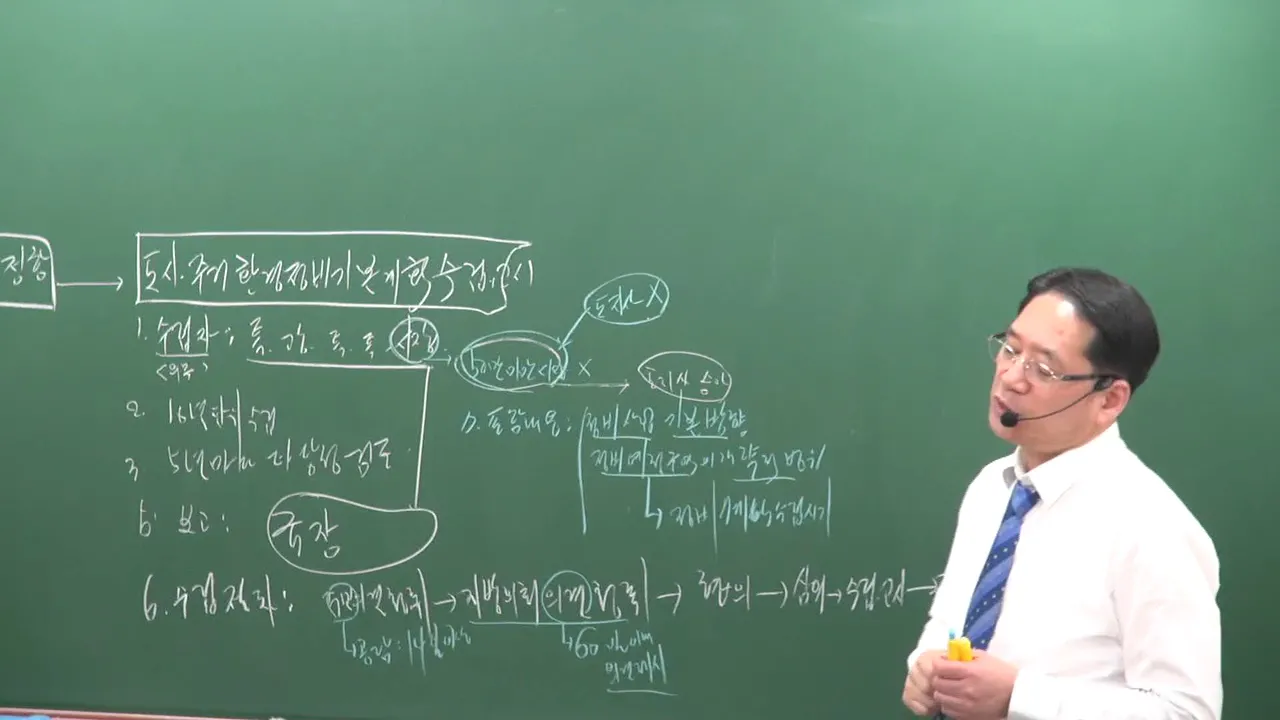 정황
도시·주거환경정비기본계획 수립, 고시
1. 수립자: 특. 광. 특. 특. 시장
<의무>
50만 미만 시의 X
도지사 X
도지사 승인
2. 10년 단위 수립
3. 5년마다 타당성 검토
5. 보고: 국장
7. 포함내용: 정비사업 기본방향
정비예정구역의 개략적 범위
정비 계획수립시기
6. 수립절차: 주민 → 지방의회 의견청취 → 협의 → 심의 → 수립·고시 →
공람: 14일 이상
60일 이내
의견제시